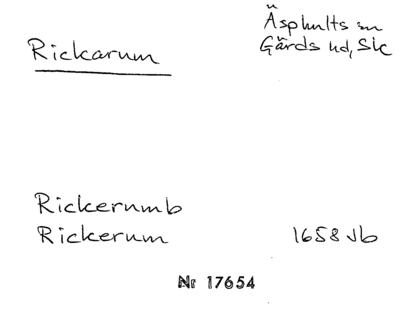 Rickarum
Äsphults sn
Gärds hd, Sk
Rickerumb
Rickerum 1658 Jb
Nr 17654